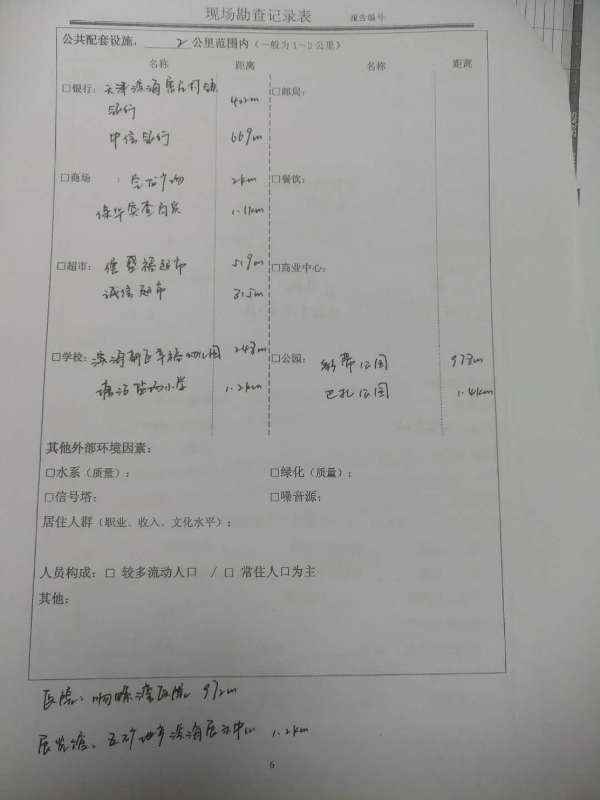 现场勘查记录表 报告编号:
公共配套设施, 2 公里范围内（一般为1~2公里）
名称 距离 名称 距离
□银行: 天津滨海 村镇 402m □邮局:
银行
中信银行 669m
□商场 : 广场 2km □餐饮:
1.11km
□超市: 超市 519m □商业中心:
诚信超市 315m
□学校: 滨海新区幸福幼儿园 248m □公园: 彩带公园 978m
塘沽 小学 1.2km 巴扎公园 1.4km
其他外部环境因素:
□水系（质量）: □绿化（质量）:
□信号塔: □噪音源:
居住人群（职业、收入、文化水平）:
人员构成: □ 较多流动人口 / □ 常住人口为主
其他:
医院、 湾医院 972m
展览馆、五矿地产滨海展示中心 1.2km
6